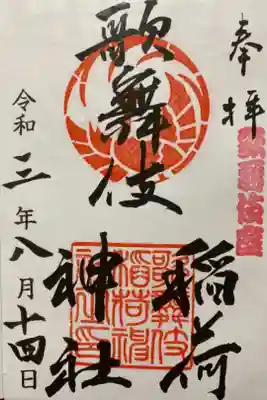 奉拝
歌舞伎座
歌舞伎
稲荷
神社
歌舞伎稲荷神社之印
令和三年八月十四日